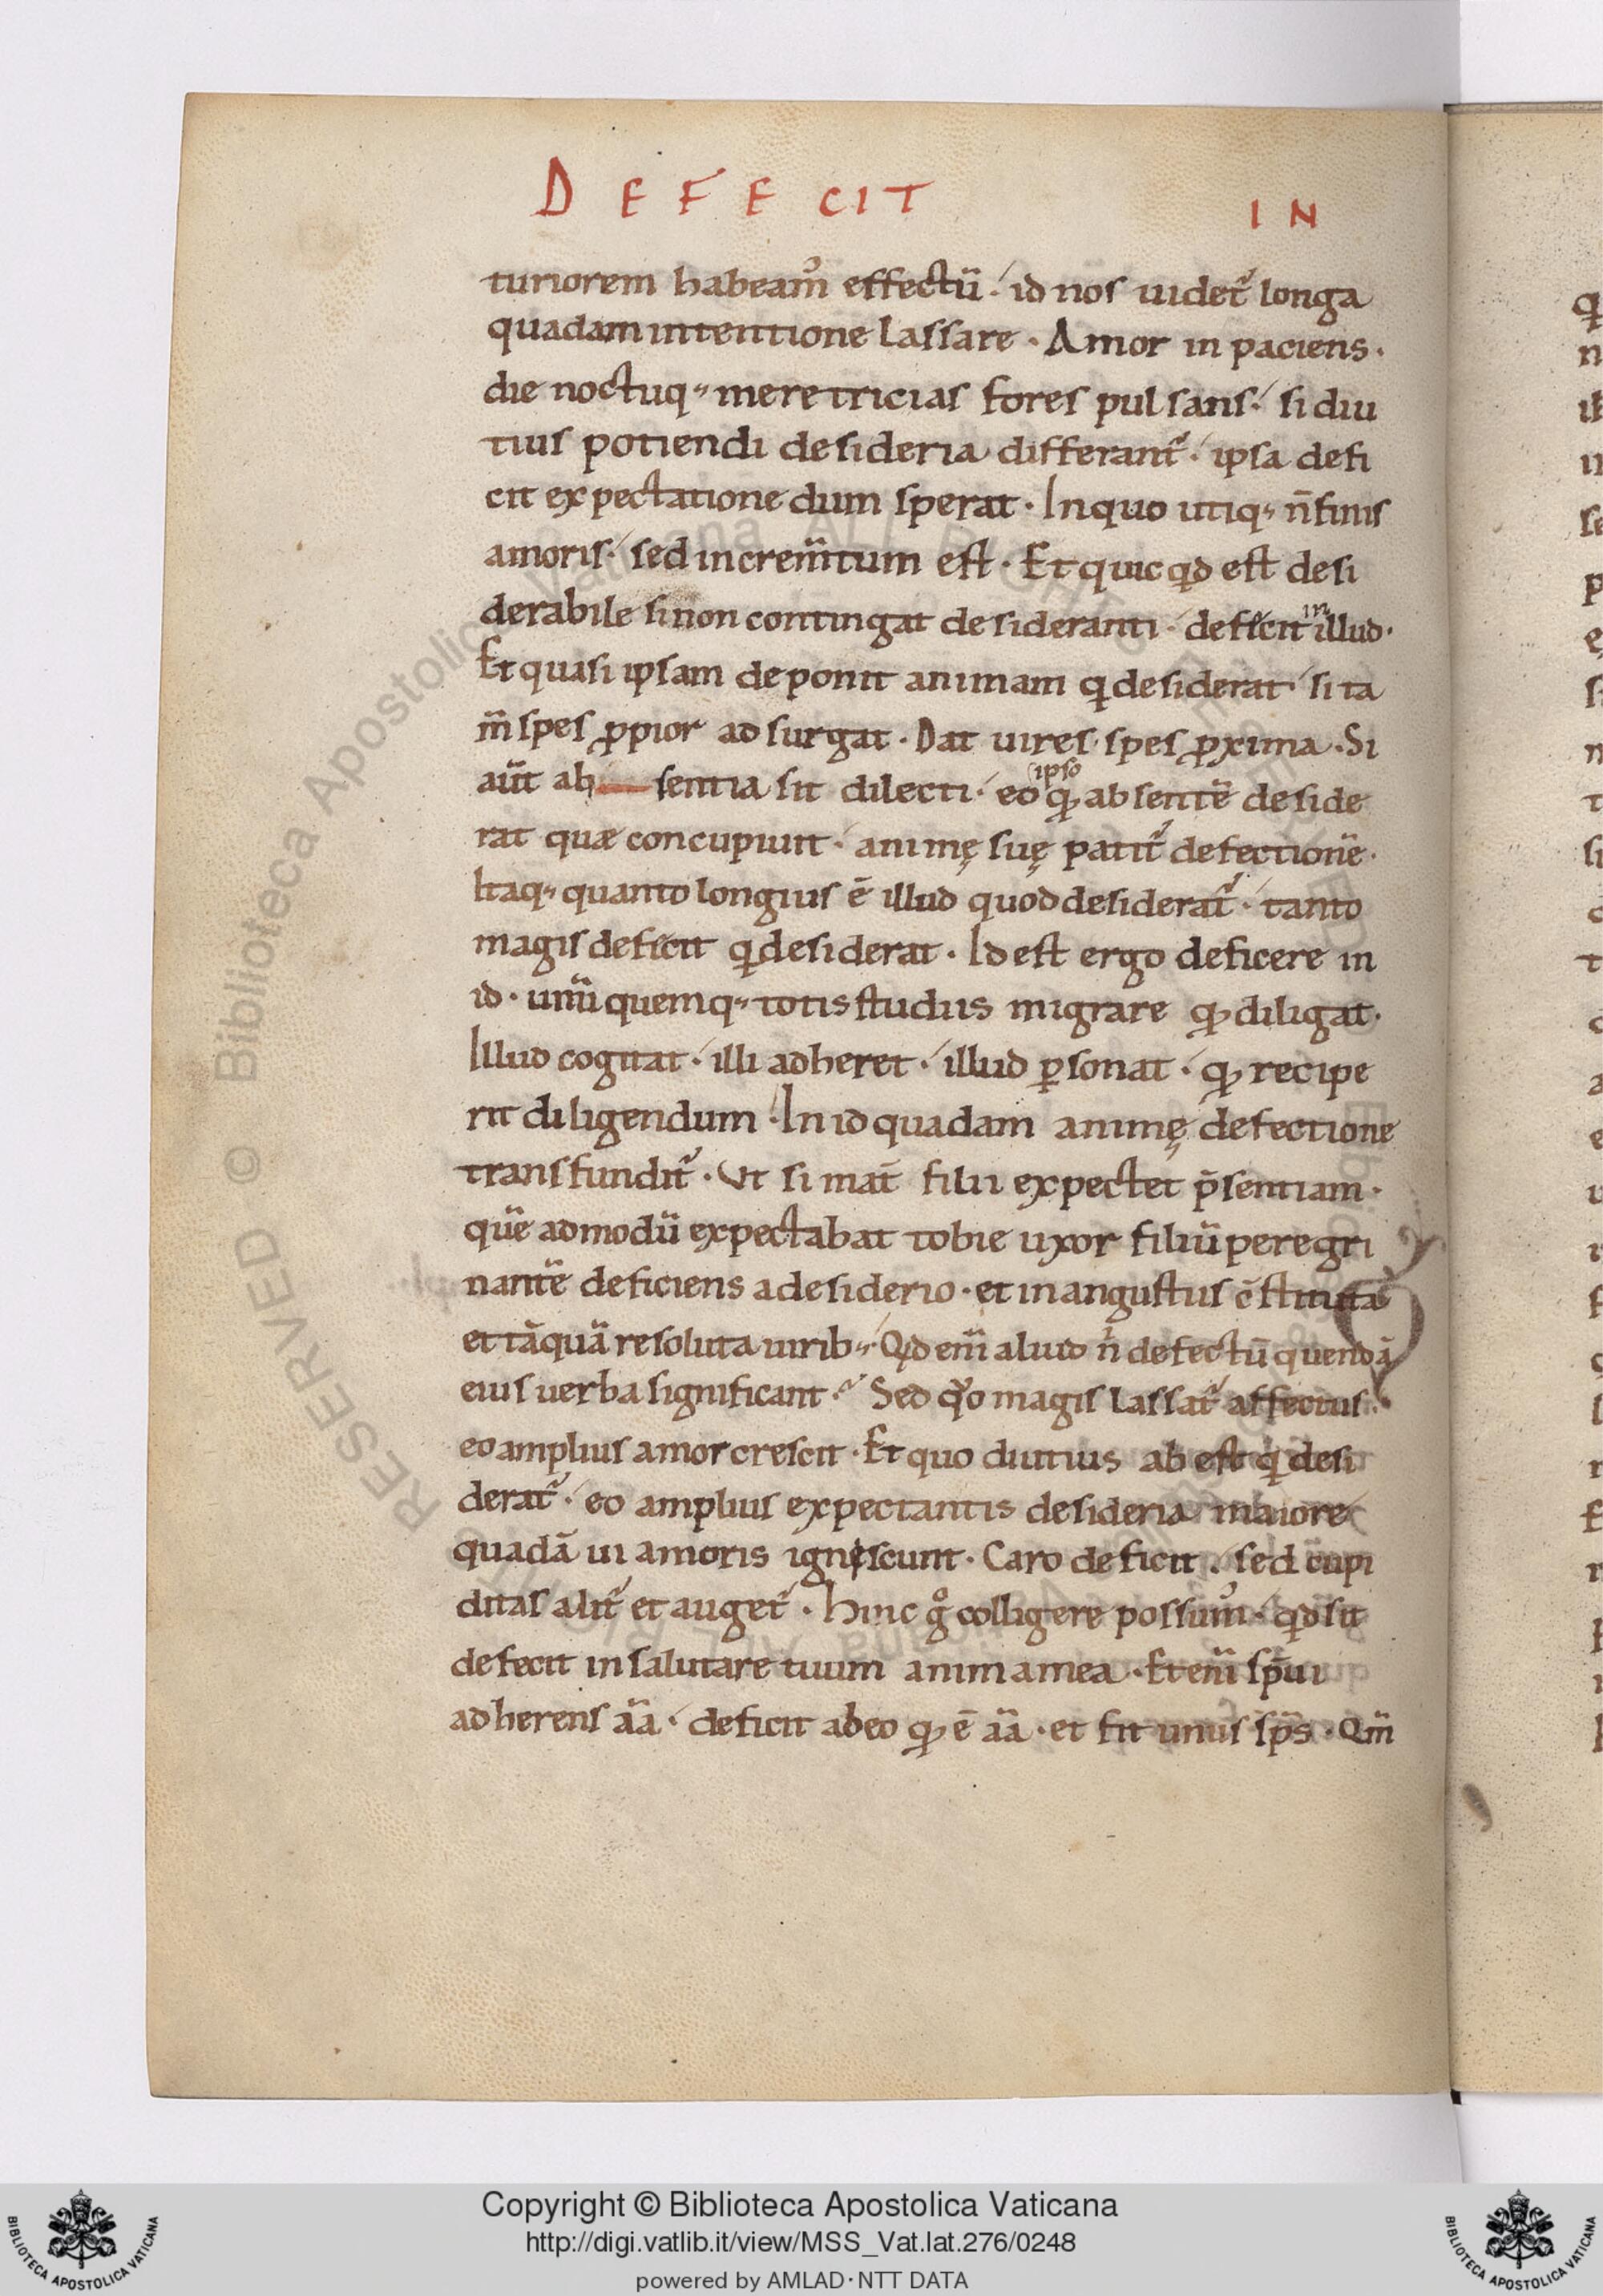 DEFECIT IN
turiorem habeam᷒ effectū· id nos uidet᷑ longa
quadam intentione lassare · Amor in paciens ·
die noctuq᷒ meretricias fores pulsans· si diu
tius potiendi desideria differant᷑· ipsa defi
cit expectatione dum sperat · In quo utiq᷒ n̄ finis
amoris· sed increm̄tum est · Et quicqd est desi
derabile si non contingat desideranti · deficit in illud·
Et quasi ipsam deponit animam q desiderat· si ta
m̄ spes ꝓpior adsurgat · Dat uires spes ꝓxima · Si
aūt ab sentia sit dilecti· eo ipso qđ absentē deside
rat quæ concupiuit · animę suę patit᷑ defectionē·
Itaq᷒ quanto longius ē illud quod desiderat᷑· tanto
magis deficit q desiderat · Id est ergo deficere in
id · unū quemq᷒ totis studiis migrare qđ diligat·
Illud cogitat · illi adheret · illud ꝑsonat · qđ recipe
rit diligendum · In id quadam animę defectione
transfundit᷑ · Ut si mat̄ filii expectet p̄sentiam ·
quē admodū expectabat tobie uxor filiū peregri
nantē deficiens a desiderio · et in angustiis c̄stituta
et tāquā resoluta uirib᷒· Qd enī aliud n̄ defectū quendā
eius uerba significant · Sed qͦo magis lassat᷑ affectus ·
eo amplius amor crescit · Et quo diutius abest qđ desi
derat᷑· eo amplius expectantis desideria maiore
quadā ui amoris ignescunt · Caro deficit · sed cupi
ditas alit᷑ et auget᷑ · Hinc gͦ colligere possum᷒ · qd sit
defecit in salutare tuum anima mea · Etenī sp̄ui
adherens aīa · deficit ab eo qđ ē aīa · et fit unus sp̄s · Qm̄
q
n
se
p
e
t
Copyright © Biblioteca Apostolica Vaticana
http://digi.vatlib.it/view/MSS_Vat.lat.276/0248
powered by AMLAD·NTT DATA
BIBLIOTECA APOSTOLICA VATICANA
BIBLIOTECA APOSTOLICA VATICANA